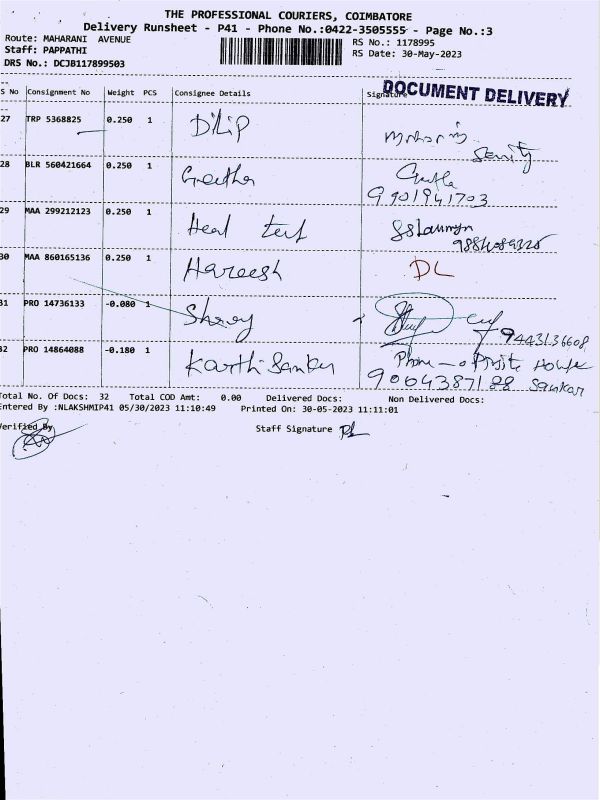 THE PROFESSIONAL COURIERS, COIMBATORE
Delivery Runsheet - P41 - Phone No.:0422-3505555 - Page No.:3
Route: MAHARANI AVENUE
RS No.: 1178995
Staff: PAPPATHI
RS Date: 30-May-2023
DRS No.: DCJB117899503
DOCUMENT DELIVERY
S No Consignment No Weight PCS Consignee Details Signature
27 TRP 5368825 0.250 1 Dilip
28 BLR 560421664 0.250 1 Geetha
9901941703
29 MAA 299212123 0.250 1 Heal
30 MAA 860165136 0.250 1 Hareesh DL
31 PRO 14736133 -0.080 1
9443136608
32 PRO 14864088 -0.180 1 Karthi Sanker
Phone - House
9004387128 Sankar
Total No. Of Docs: 32 Total COD Amt: 0.00 Delivered Docs: Non Delivered Docs:
Entered By :NLAKSHMIP41 05/30/2023 11:10:49 Printed On: 30-05-2023 11:11:01
Verified By
Staff Signature